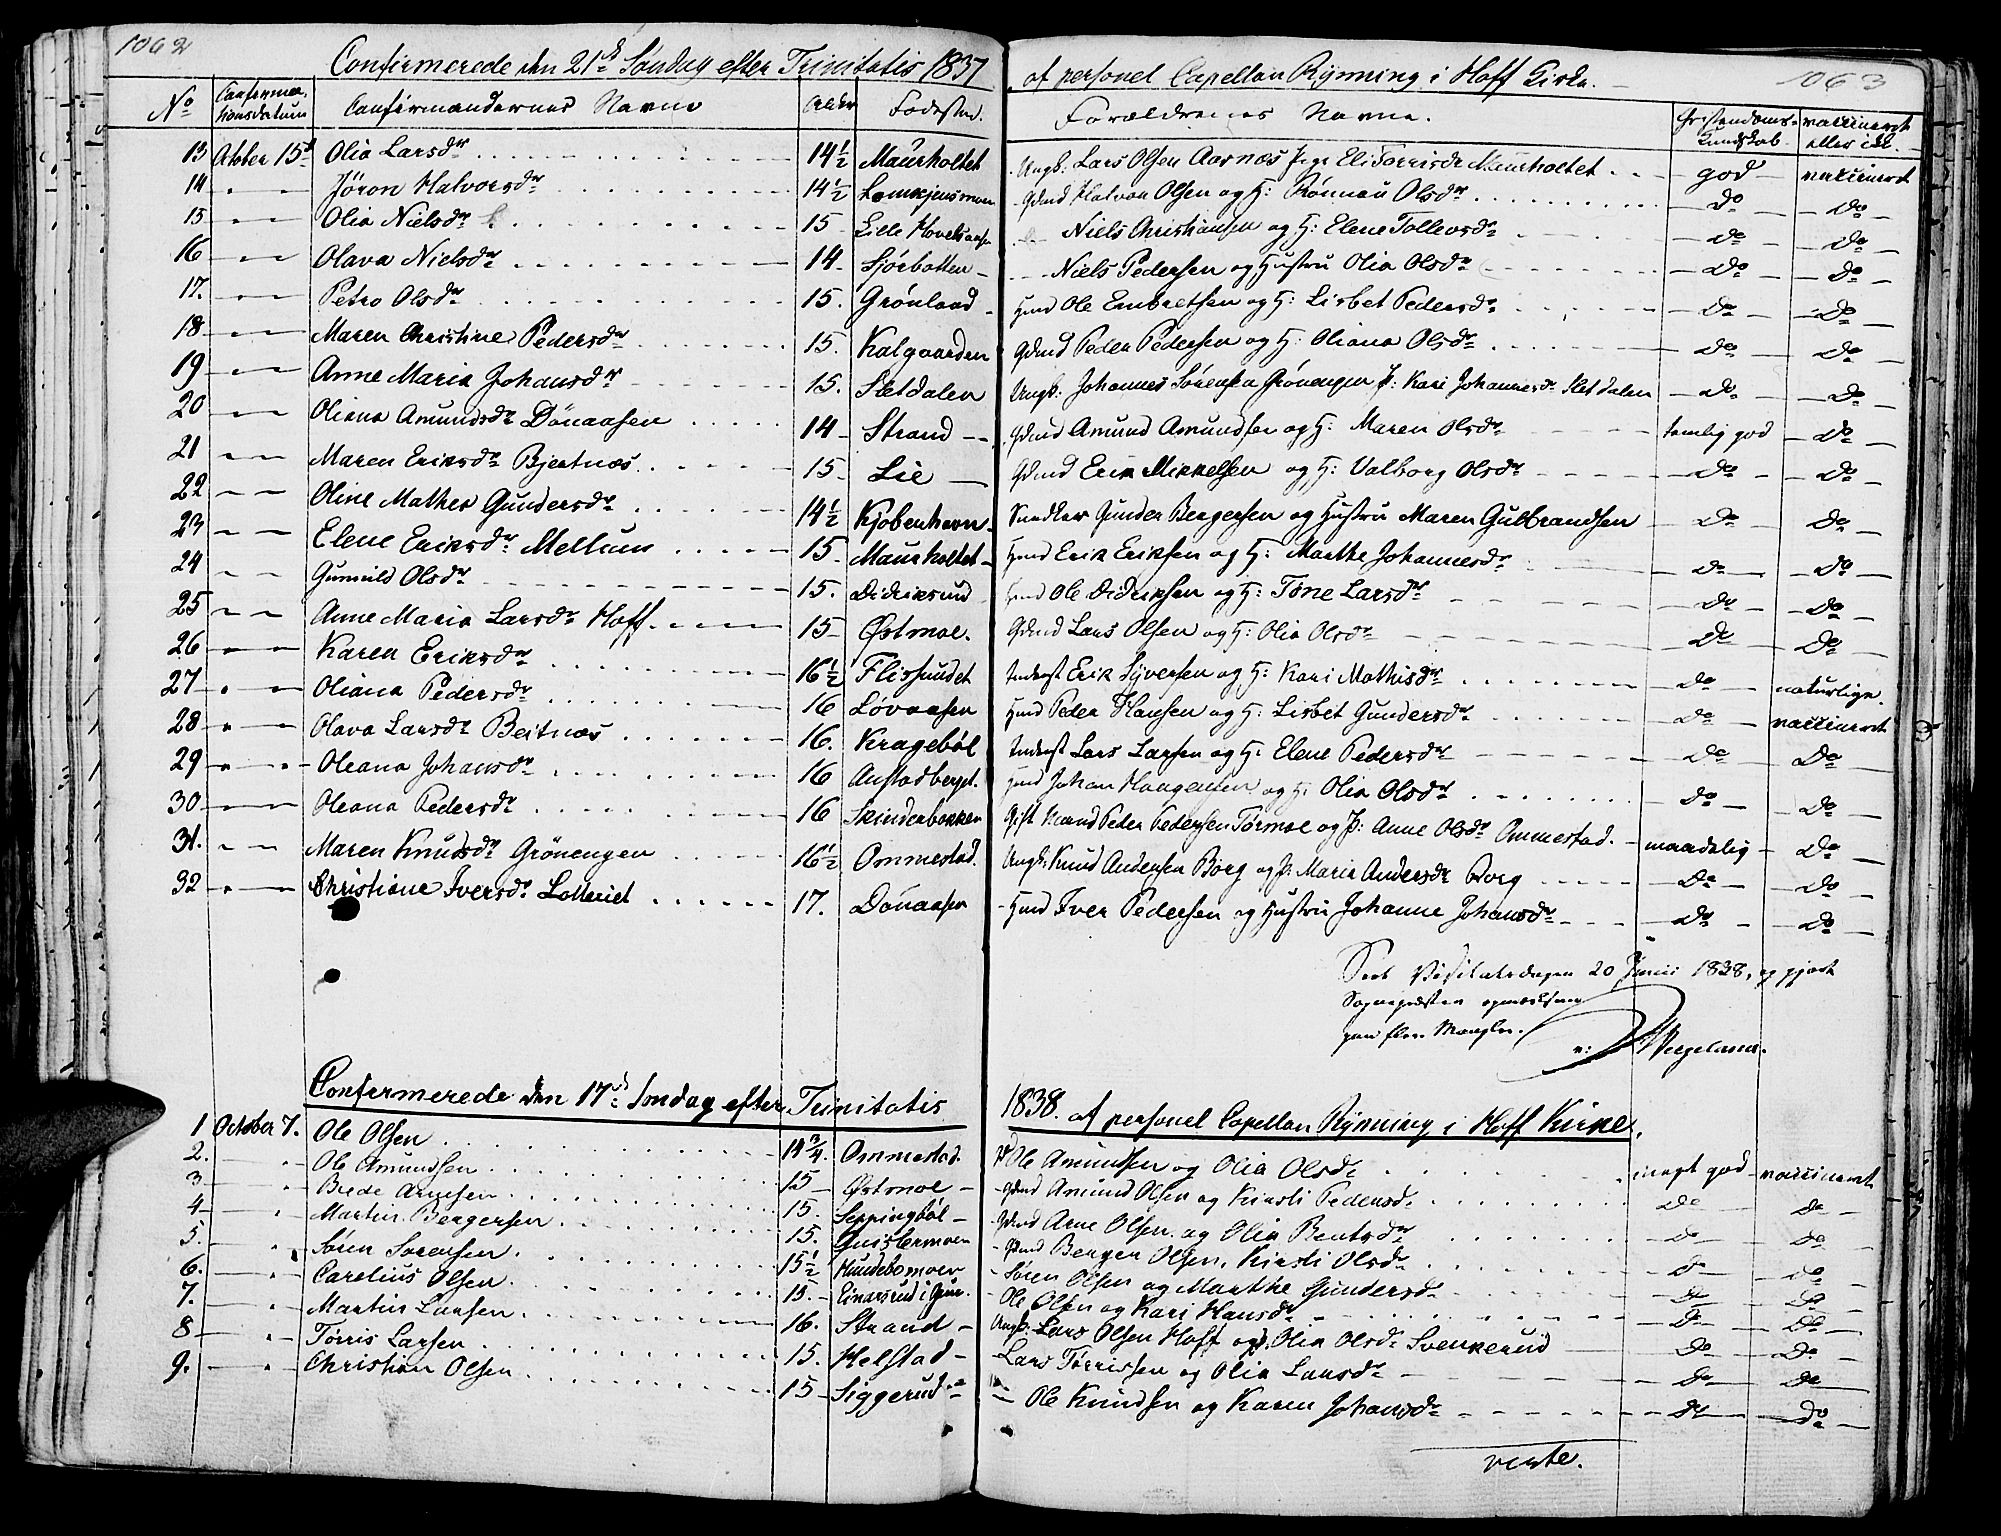 1062
Confirmerede den 21de Søndag efter Trinitatis 1837 af personel Capellan Rynning i Hoff Kirke.
1063
No Confirmationsdatum Confirmandernes Navne Alder Fødested. Forældrenes Navne. Christendoms-Kundskab vaccineret eller ikke
13 October 15de Olia Larsdr 14½ Maurholtet Ungk: Lars Olsen Aasnæs Pige Eli Torrisdr Maurholtet god vaccineret
14 " " Jøron Halvorsdr 14½ Gdmd Halvor Olsen og H: Rønnau Olsdr do do
15 " " Olia Nielsdr 15 Lille Hovelsaasen Niels Christiansen og H: Elene Tollevsdr do do
16 " " Olava Nielsdr 14 Sjørbotten Niels Pedersen og Hustru Olia Olsdr do do
17. " " Petro Olsdr 15. Grønland Hmd Ole Embretsen og H: Lisbet Pedersdr do do
18 " " Maren Christine Pedersdr 15. Kalgaarden Gdmd Peder Pedersen og H: Oliana Olsdr do do
19 " " Anne Maria Johansdr 15. Sletdalen Ungk: Johannes Sørensen Grønengen P: Kari Johannesdr Sletdalen do do
20 " " Oliana Amundsdr Dönaasen 14 Strand Gdmd Amund Amundsen og H: Maren Olsdr temlig god do
21 " " Maren Eriksdr Bjertnæs 15 Lie Gdmd Erik Mikkelsen og H: Valborg Olsdr do do
22 " " Oline Mathea Gundersdr 14½ Kjøbenhavn Snedker Gunder Bergersen og Hustru Maren Gulbrandsen do do
23 " " Elene Eriksdr Mellum 15 Maurholtet Hmd Erik Eriksen og H: Marthe Johannesdr do do
24 " " Gunnild Olsdr 15. Didriksrud Hmd Ole Didriksen og H: Tone Larsdr do do
25 " " Anne Maria Larsdr Hoff 15 Østmoe. Gdmd Lars Olsen og H: Olia Olsdr do do
26 " " Karen Eriksdr 16½ Flissundet Inderst Erik Syversen og H: Kari Mathisdr do naturlige.
27 " " Oliana Pedersdr 16 Løvaasen Hmd Peder Hansen og H: Lisbet Gundersdr do vaccineret
28 " " Olava Larsdr Beitnæs 16. Kragebøl Inderst Lars Larsen og H: Elene Pedersdr do do
29 " " Oleana Johansdr 16 Austadberget. Hmd Johan Haagensen og H: Olia Olsdr do do
30 " " Oleana Pedersdr 16 Skinderbakken Gift Mand Peder Pedersen Tørmoe og P: Anne Olsdr Ommestad. maadelig do
31. " " Maren Knudsdr Grönengen 16½ Ommestad. Ungk: Knud Andersen Borg og P: Maria Andersdr Borg do do
32 " " Christiane Iversdr Lotteriet 17. Dönaasen Hmd Iver Pedersen og Hustru Johanne Johansdr do do
Seet Visitatsdagen 20 Junii 1838, og gjort
Sognepræsten opmærksom
paa flere Mangler.
N: Wergeland.
Confermerede den 17de Søndag efter Trinitatis 1838. af personel Capellan Rynning i Hoff Kirke.
1 October 7. Ole Olsen 14¾. Ommestad. Ole Amundsen og Olia Olsdr meget god vaccineret
2. " Ole Amundsen 15 Østmoe Gdmd Amund Olsen og Kirsti Pedersdr do do
3 " Brede Arnesen 15. Seppingbøl Gdmd Arne Olsen og Olia Bentsdr do do
4 " Martin Bergersen 15. Guislermoen Gdmd Berger Olsen, Kirsti Olsdr do do
5. " Søren Sørensen. 15½ Hundebomoen Søren Olsen og Marthe Gundersdr do do
6. " Carelius Olsen. 15. Einarsrud i Grue. Ole Olsen og Kari Hansdr do do
7. " Martin Larsen 16. Strand Ungk. Lars Olsen Hoff og P. Olia Olsdr Svenkerud do do
8 " Torris Larsen 15. Helstad Lars Tørrissen og Olia Larsdr do do
9. " Christian Olsen 15 Siggerud Ole Knudsen og Karen Johansdr do do
verte.